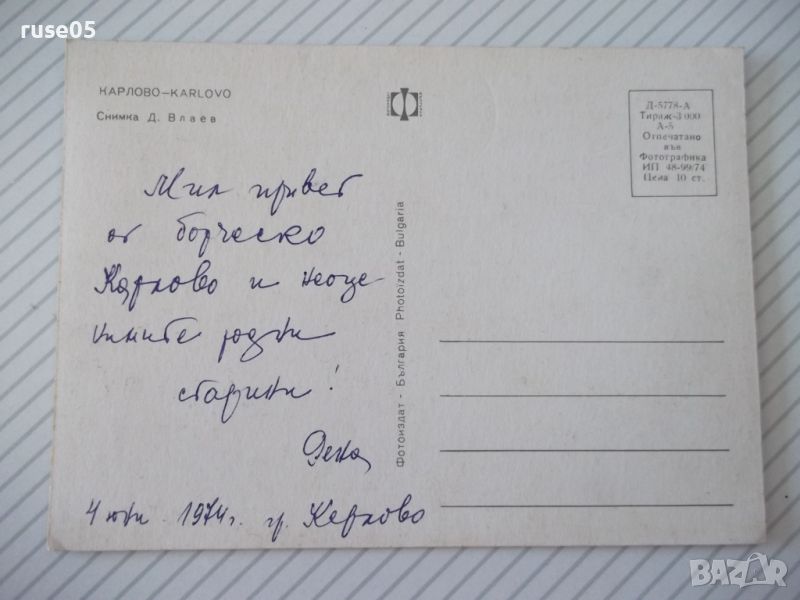 ruse05
КАРЛОВО–KARLOVO
Снимка Д. Влаев
Д-5778-А
Тираж-3 000
А-5
Отпечатано
във
Фотографика
ИП 48-99/74
Цена 10 ст.
Мил привет
от борческо
Карлово и неоце-
нимите родни
старини!
4 юни 1974 г. гр. Карлово
Фотоиздат - България Photoizdat - Bulgaria
BAZAR